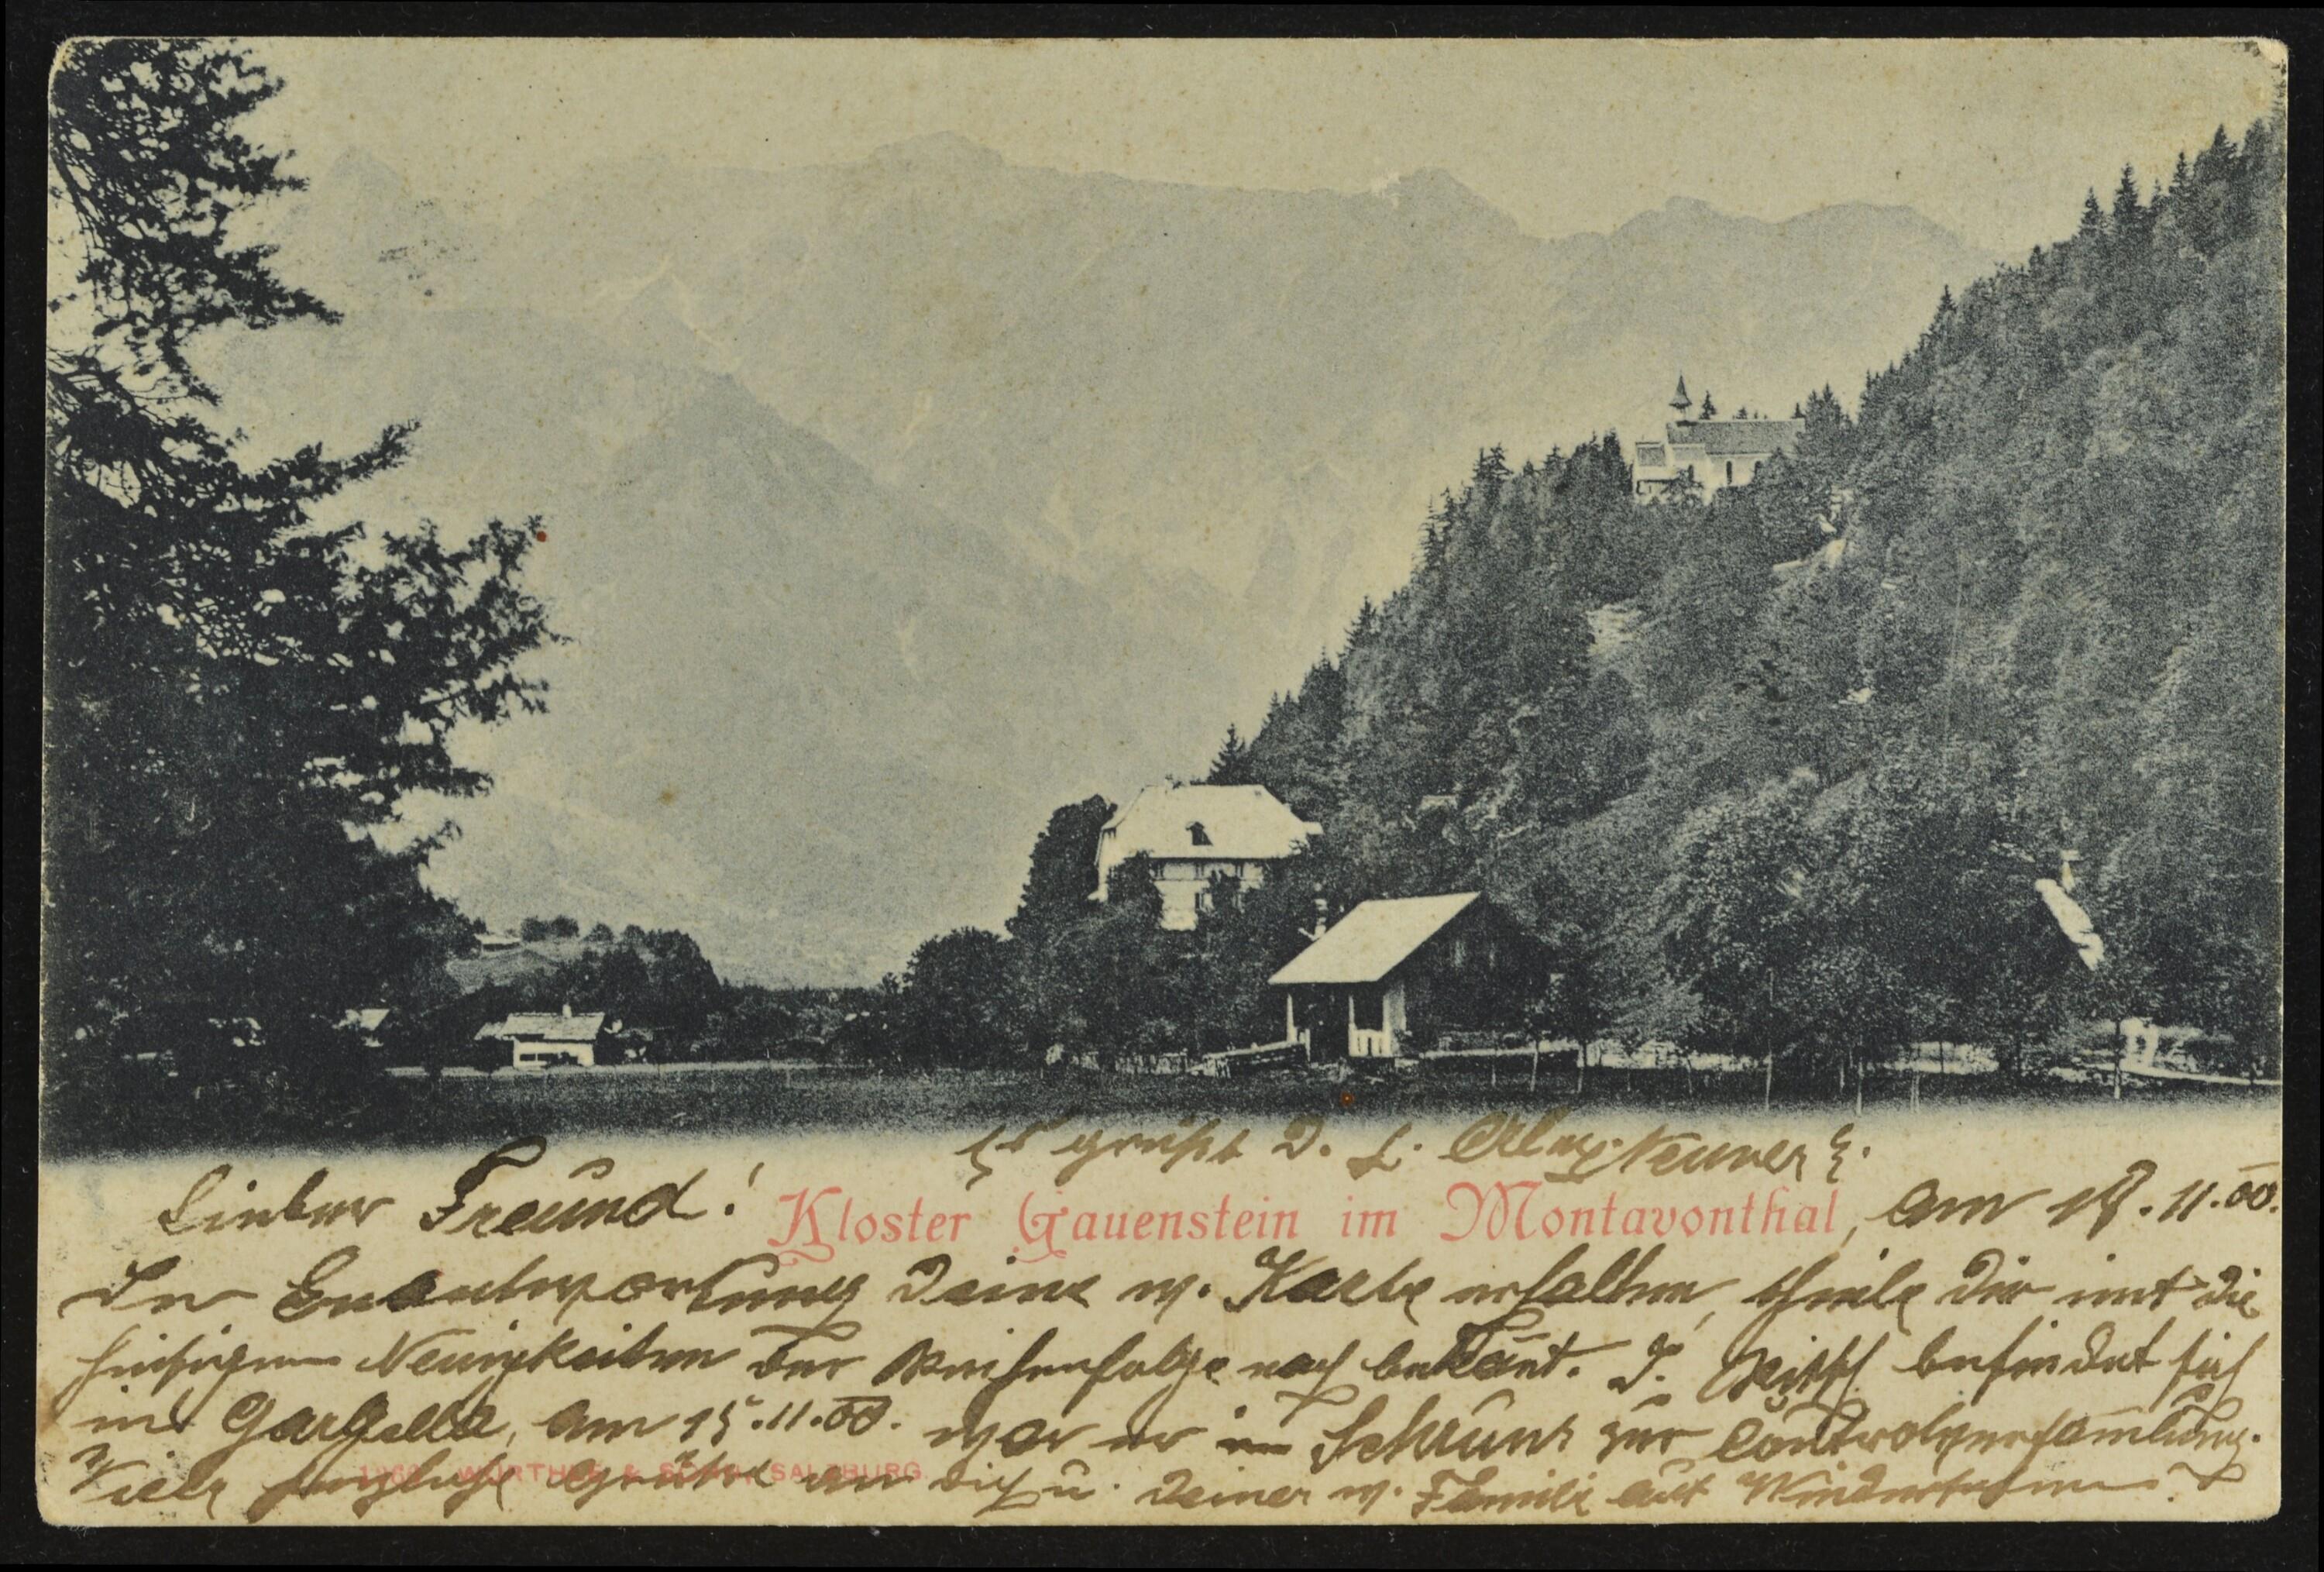 Es grüßt D. L.
Lieber Freund!
Kloster Gauenstein im Montavonthal, am 18.11.00.
In Beantwortung Deine w. Karte erhalten, theile Dir mit die
hiesigen Neuigkeiten der Reihenfolge nach bekant. J. befindet sich
in Gargella, am 15.11.00. war er in Schruns zur Controlversamlung.
Viele herzliche Grüße an Dich u. Deiner w. Familie auf Wiedersehen!
WÜRTHLE & SOHN, SALZBURG.